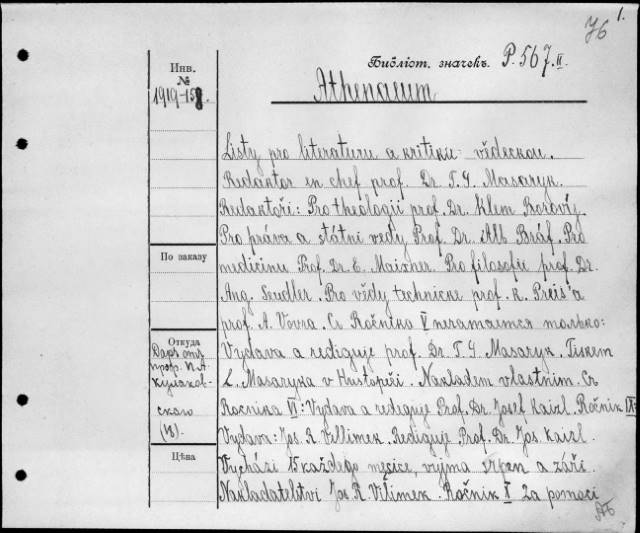 1.
76
Библіот. значекъ. P. 567. II.
Инв.
№
1919-158.
Athenaeum
Listy pro literaturu a kritiku vědeckou.
Redaktor en chef prof. Dr. T. G. Masaryk.
Redaktoři: Pro theologii prof. Dr. Klem Borový.
Pro práva a státní vědy Prof. Dr. Alb Bráf. Pro
medicinu Prof. Dr. E. Maixner. Pro filosofii prof. Dr.
Aug. Seydler. Pro vědy technické prof. K. Preis a
prof. A. Vávra. Съ Ročníka V печатается только:
Vydává a rediguje prof. Dr. T. G. Masaryk. Tiskem
L. Masaryka v Hustopeči. Nákladem vlastním. Съ
Ročníka VI: Vydává a rediguje Prof. Dr. Josef Kaizl. Ročník IX:
Vydává: Jos. R. Vilímek. Rediguje Prof. Dr. Jos. Kaizl.
Vychází 15 každého měsíce, vyjma srpen a září.
Nakladatelství Jos. R. Vilímek. Ročník X Za pomoci
По заказу
Откуда
Даръ отъ
проф. П. А.
Кулаков-
ского
(18).
Цѣна